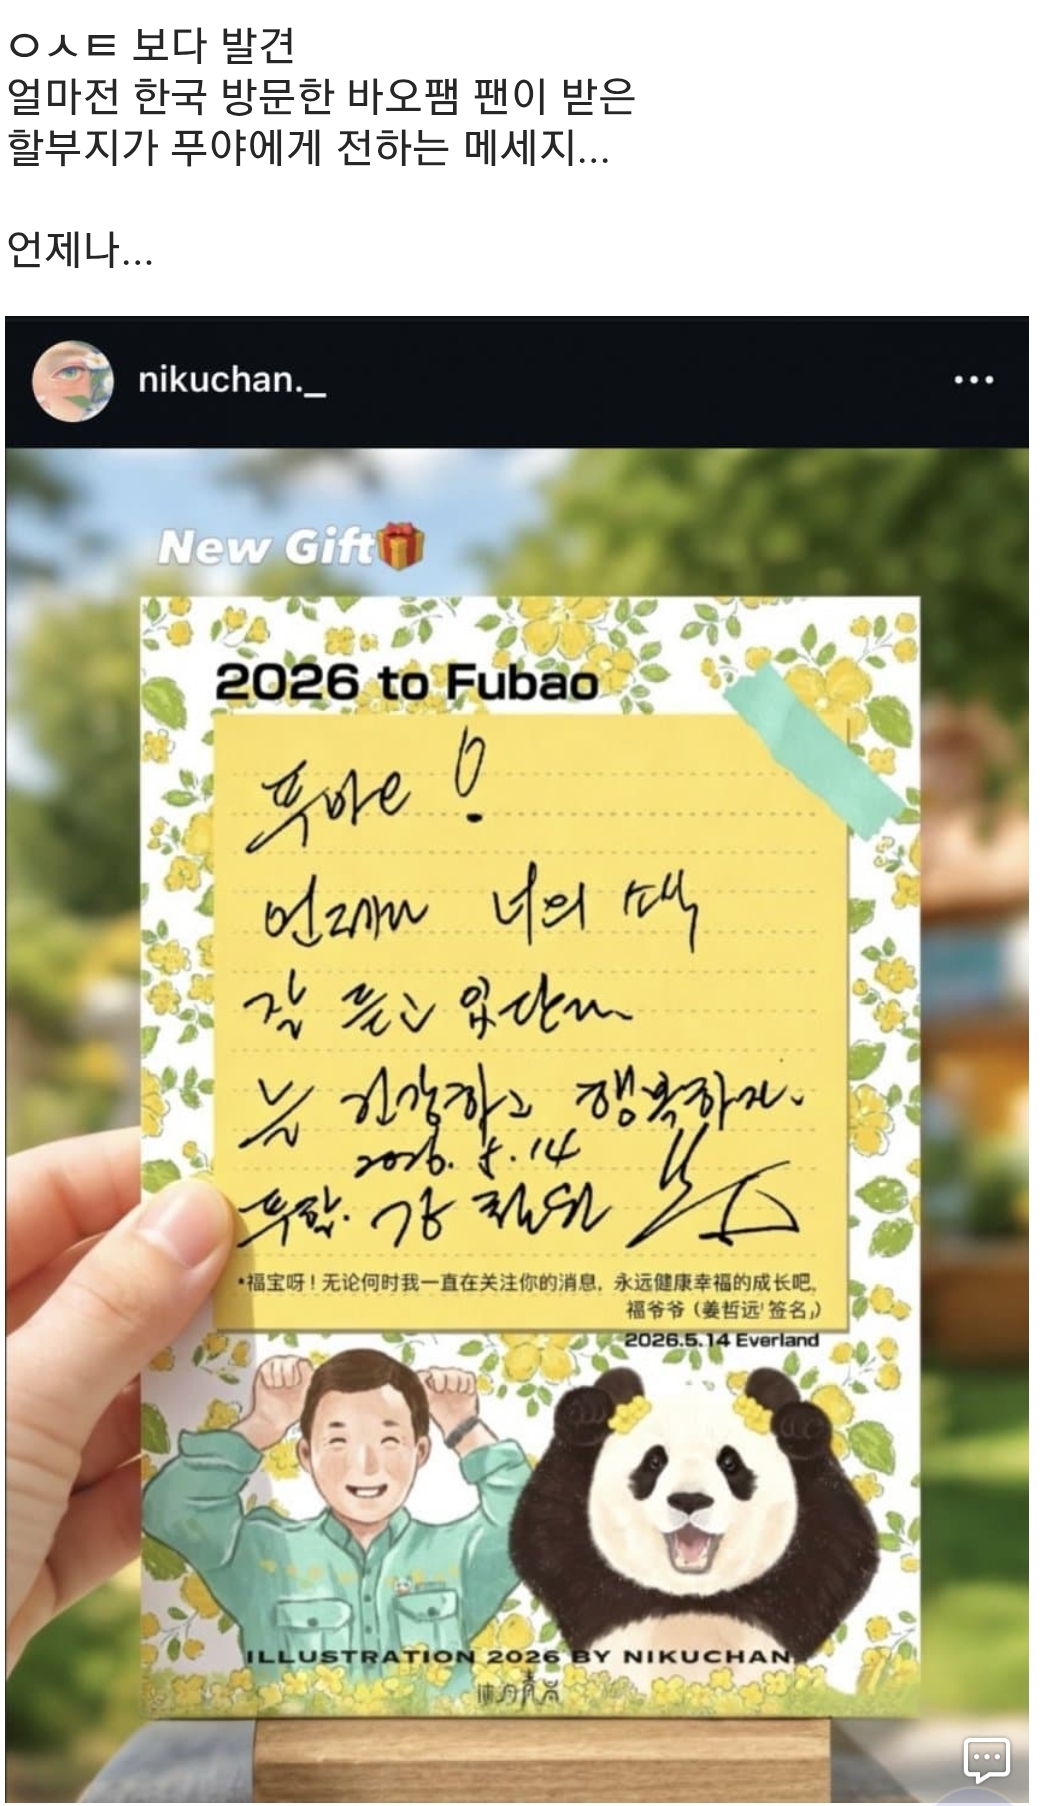 ㅇㅅㅌ 보다 발견
얼마전 한국 방문한 바오팸 팬이 받은
할부지가 푸야에게 전하는 메세지...
언제나...
nikuchan._
New Gift
2026 to Fubao
푸야!
언제나 너의 소식
잘 듣고 있단다
늘 건강하고 행복하자.
2026. 5. 14
푸할. 강철원
•福宝呀！无论何时我一直在关注你的消息，永远健康幸福的成长吧。
福爷爷（姜哲远 签名）
2026.5.14 Everland
ILLUSTRATION 2026 BY NIKUCHAN